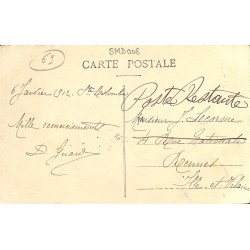 69
SMD006
CARTE POSTALE
6 Janvier 1912. Ste Colombe
Mille remerciements
D. Girard
Poste Restante
Monsieur J. Lecorsu
4 Rue Nationale
Rennes
Ille et Vila